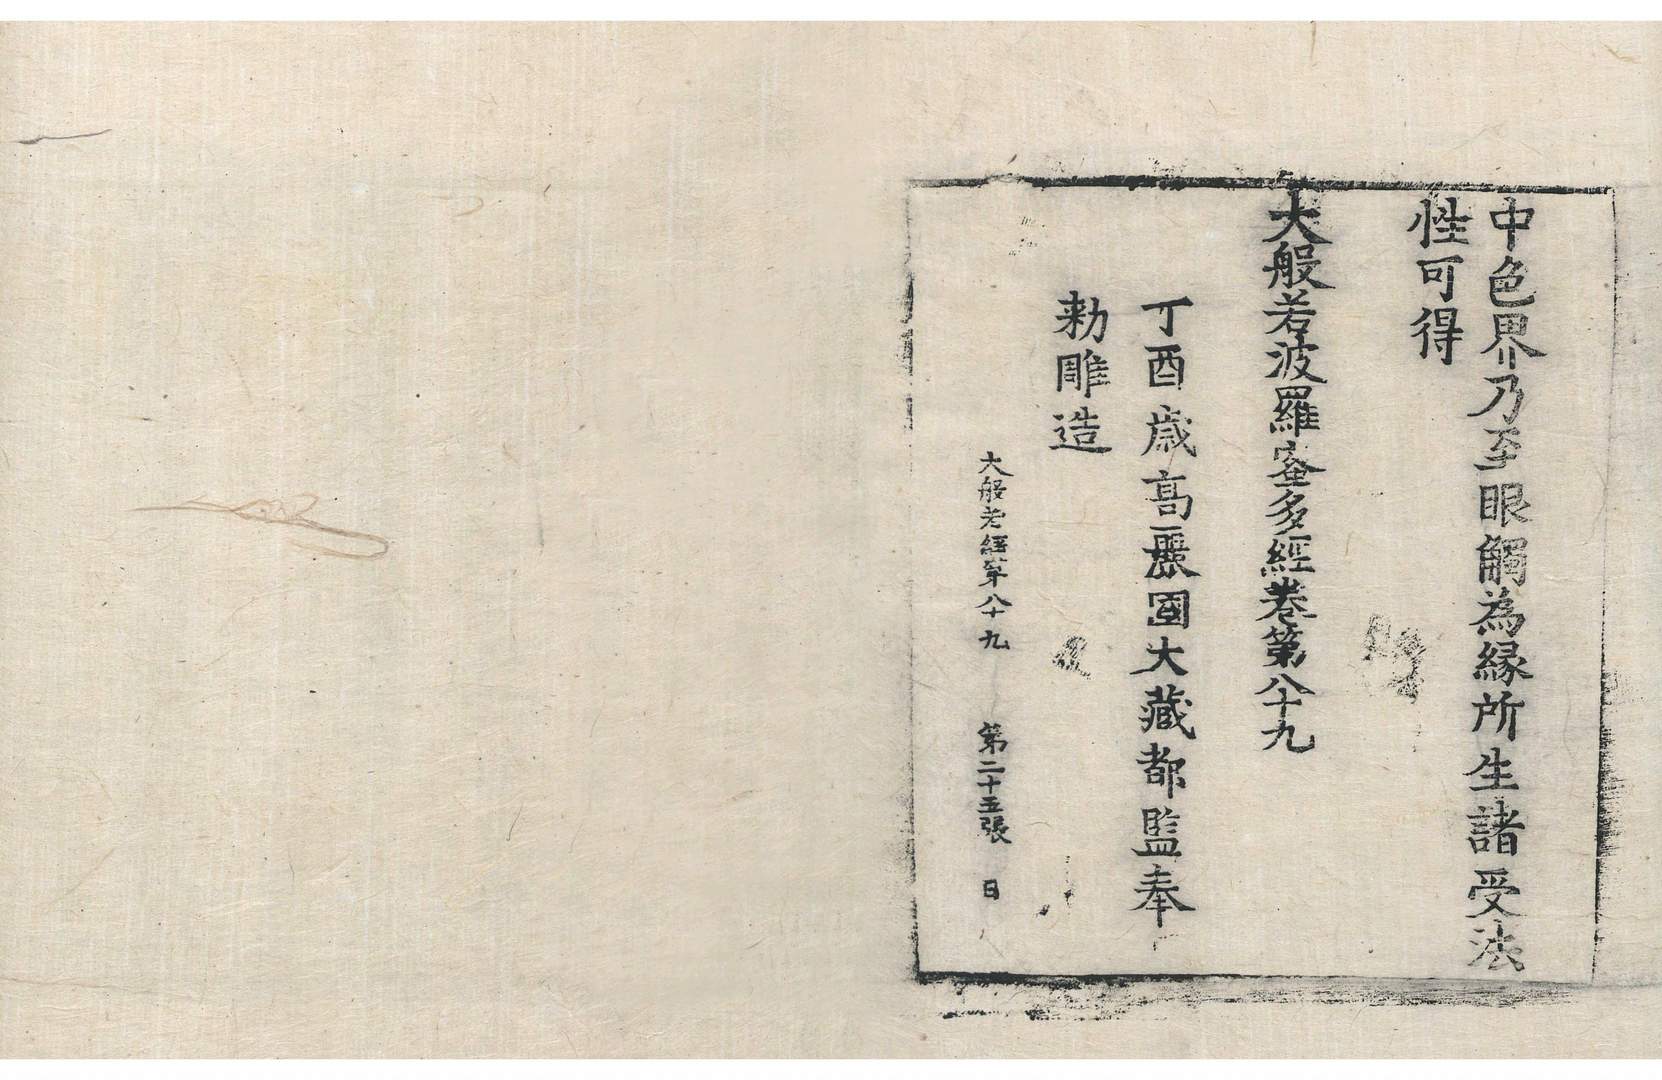 中色界乃至眼觸為縁所生諸受法
性可得
大般若波羅蜜多經卷第八十九
丁酉歳高麗國大藏都監奉
勅雕造
大般若經第八十九 第二十五張 日